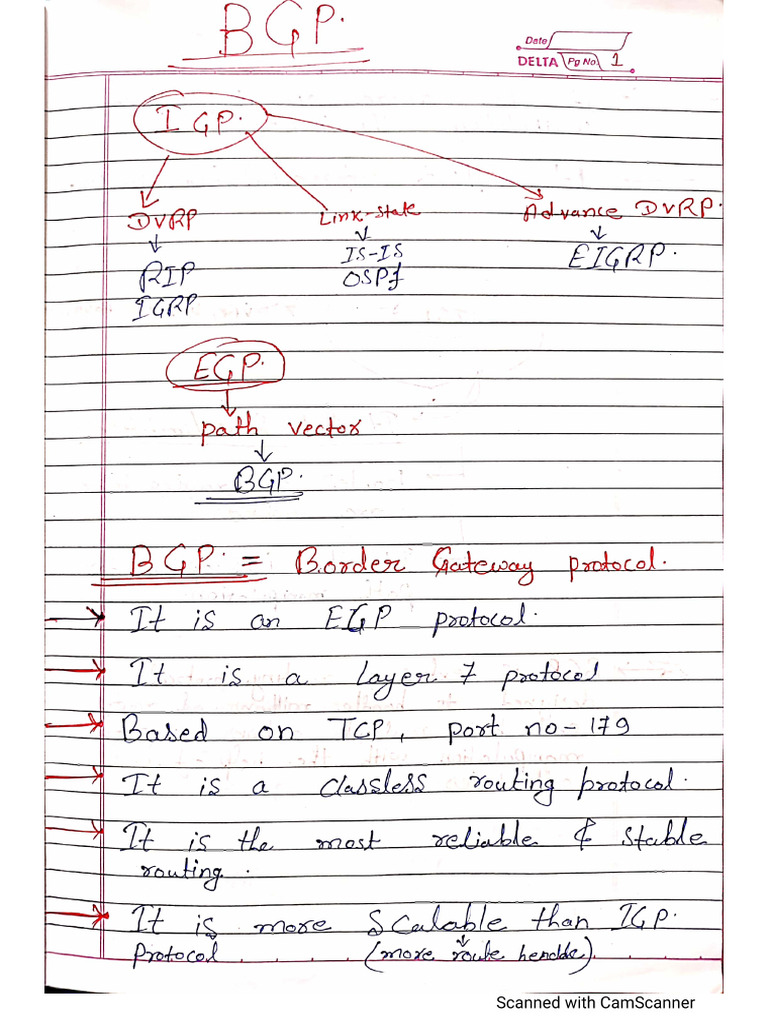 BGP.
Date
DELTA Pg No. 1
IGP.
DVRP Link-state Advance DVRP.
RIP IS-IS EIGRP.
IGRP OSPf
EGP.
path vector
BGP.
BGP. = Border Gateway protocol.
It is an EGP protocol.
It is a layer 7 protocol
Based on TCP, port no - 179
It is a classless routing protocol.
It is the most reliable & stable
routing.
It is more scalable than IGP.
protocol (more route hendde)
Scanned with CamScanner